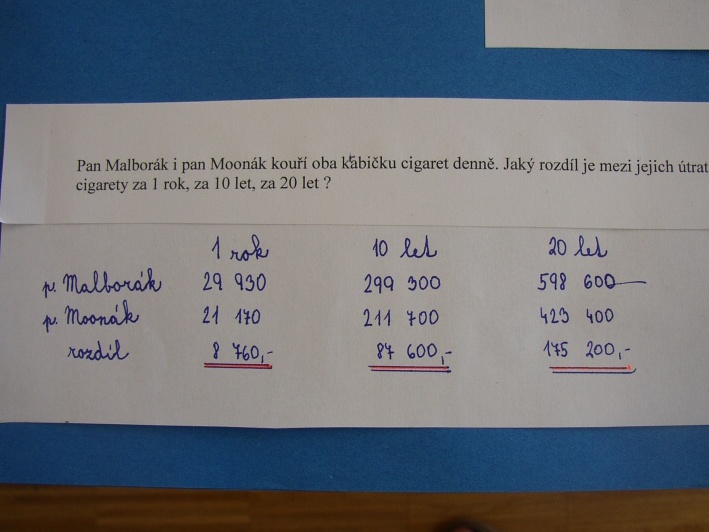 Pan Malborák i pan Moonák kouří oba kabičku cigaret denně. Jaký rozdíl je mezi jejich útrat
cigarety za 1 rok, za 10 let, za 20 let ?
1 rok 10 let 20 let
p. Malborák 29 930 299 300 598 600
p. Moonák 21 170 211 700 423 400
rozdíl 8 760,- 87 600,- 175 200,-